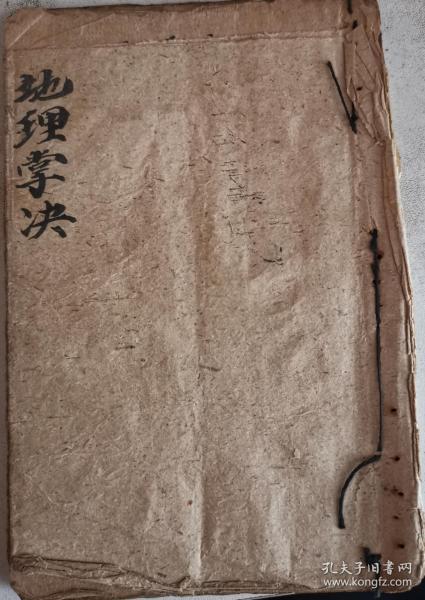 地理掌决
孔夫子旧书网
www.kongfz.com